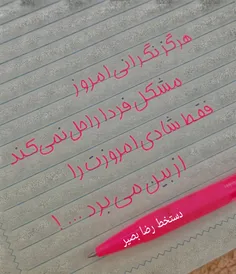 هرگز نگرانی امروز
مشکل فردا را حل نمی‌کند
فقط شادی امروزت را
از بین می برد....!
دستخط رضا بصیر